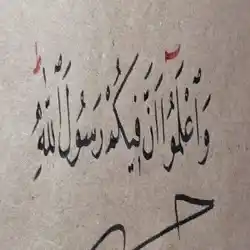 وَاعْلَمُوا أَنَّ فِيكُمْ رَسُولَ اللَّهِ